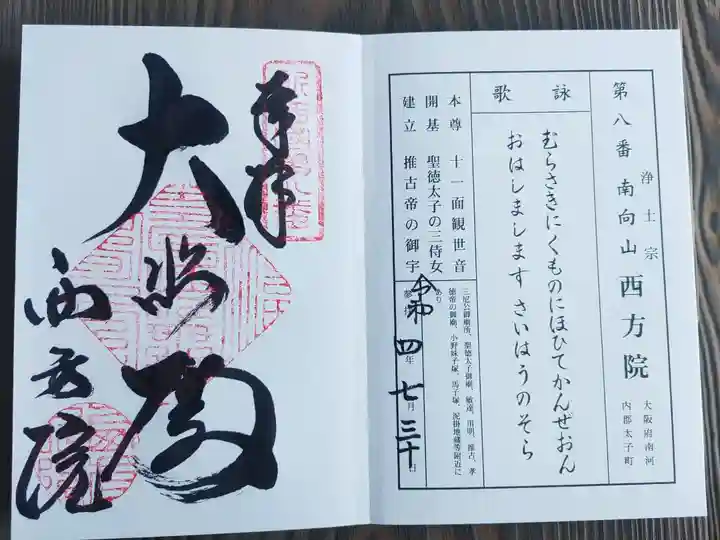 第八番 浄土宗 南向山 西方院 大阪府南河
内郡太子町
詠歌
むらさきにくものにほひてかんぜおん
おはしまします さいはうのそら
本尊 十一面観世音
開基 聖徳太子の三侍女
建立 推古帝の御宇
三尼公御廟所、聖徳太子御廟、敏達、用明、推古、孝
徳帝の御廟、小野妹子塚、馬子塚、泥掛地蔵等附近に
あり
令和四年七月三十日
奉拝
大悲殿
西方院